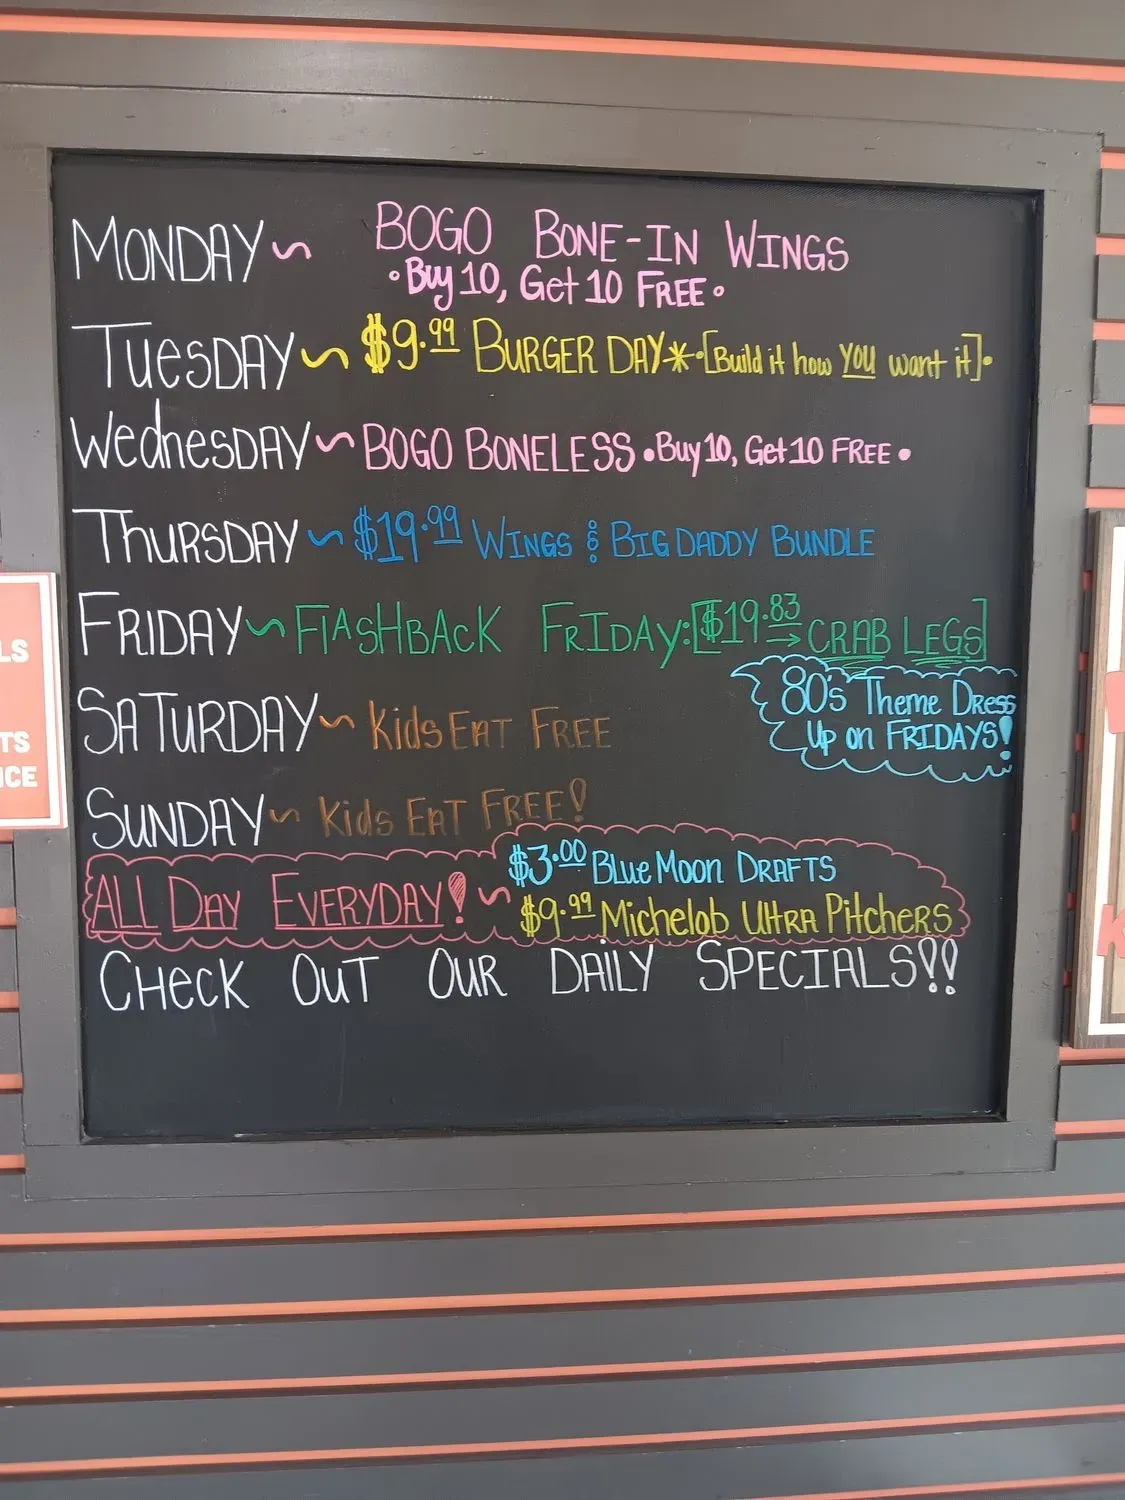 MONDAY ~ BOGO BONE-IN WINGS
• Buy 10, Get 10 FREE •
TUESDAY ~ $9.99 BURGER DAY* • [Build it how YOU want it] •
WEDNESDAY ~ BOGO BONELESS • Buy 10, Get 10 FREE •
THURSDAY ~ $19.99 WINGS & BIG DADDY BUNDLE
FRIDAY ~ FLASHBACK FRIDAY: [$19.83 → CRAB LEGS]
80's Theme Dress
Up on FRIDAYS!
SATURDAY ~ Kids EAT FREE
SUNDAY ~ Kids EAT FREE!
ALL DAY EVERYDAY! ~ $3.00 Blue Moon DRAFTS
$9.99 Michelob Ultra Pitchers
CHECK OUT OUR DAILY SPECIALS!!